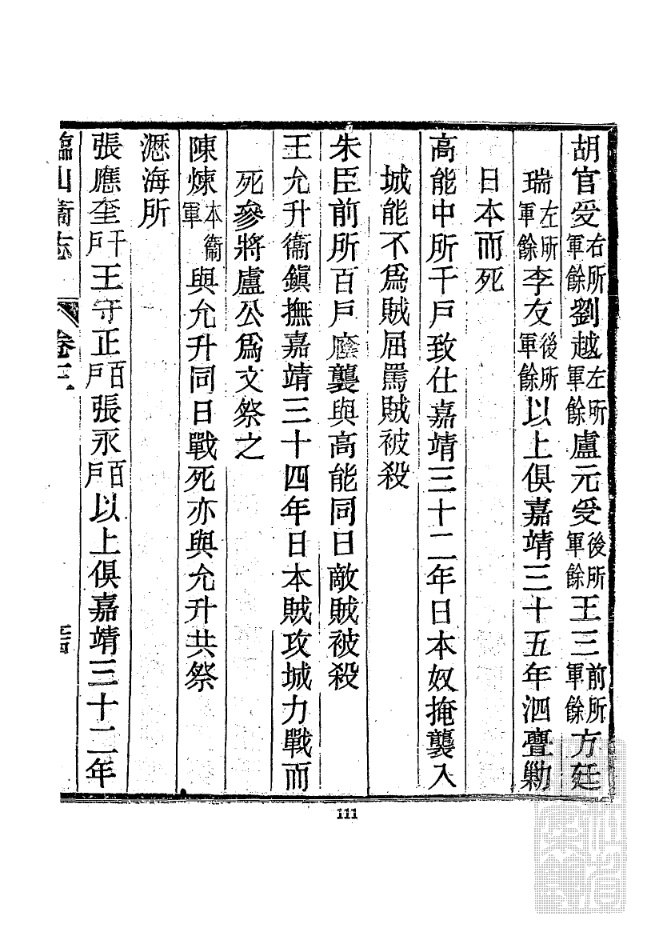 胡官受右所軍餘劉越左所軍餘盧元受後所軍餘王三前所軍餘方廷
瑞左所軍餘李友後所軍餘以上俱嘉靖三十五年泗亹勦
日本而死
高能中所千戶致仕嘉靖三十二年日本奴掩襲入
城能不爲賊屈罵賊被殺
朱臣前所百戶廕襲與高能同日敵賊被殺
王允升衞鎭撫嘉靖三十四年日本賊攻城力戰而
死參將盧公爲文祭之
陳煉本衞軍與允升同日戰死亦與允升共祭
瀝海所
張應奎千戶王守正百戶張永百戶以上俱嘉靖三十二年
臨山衞志 卷三
111